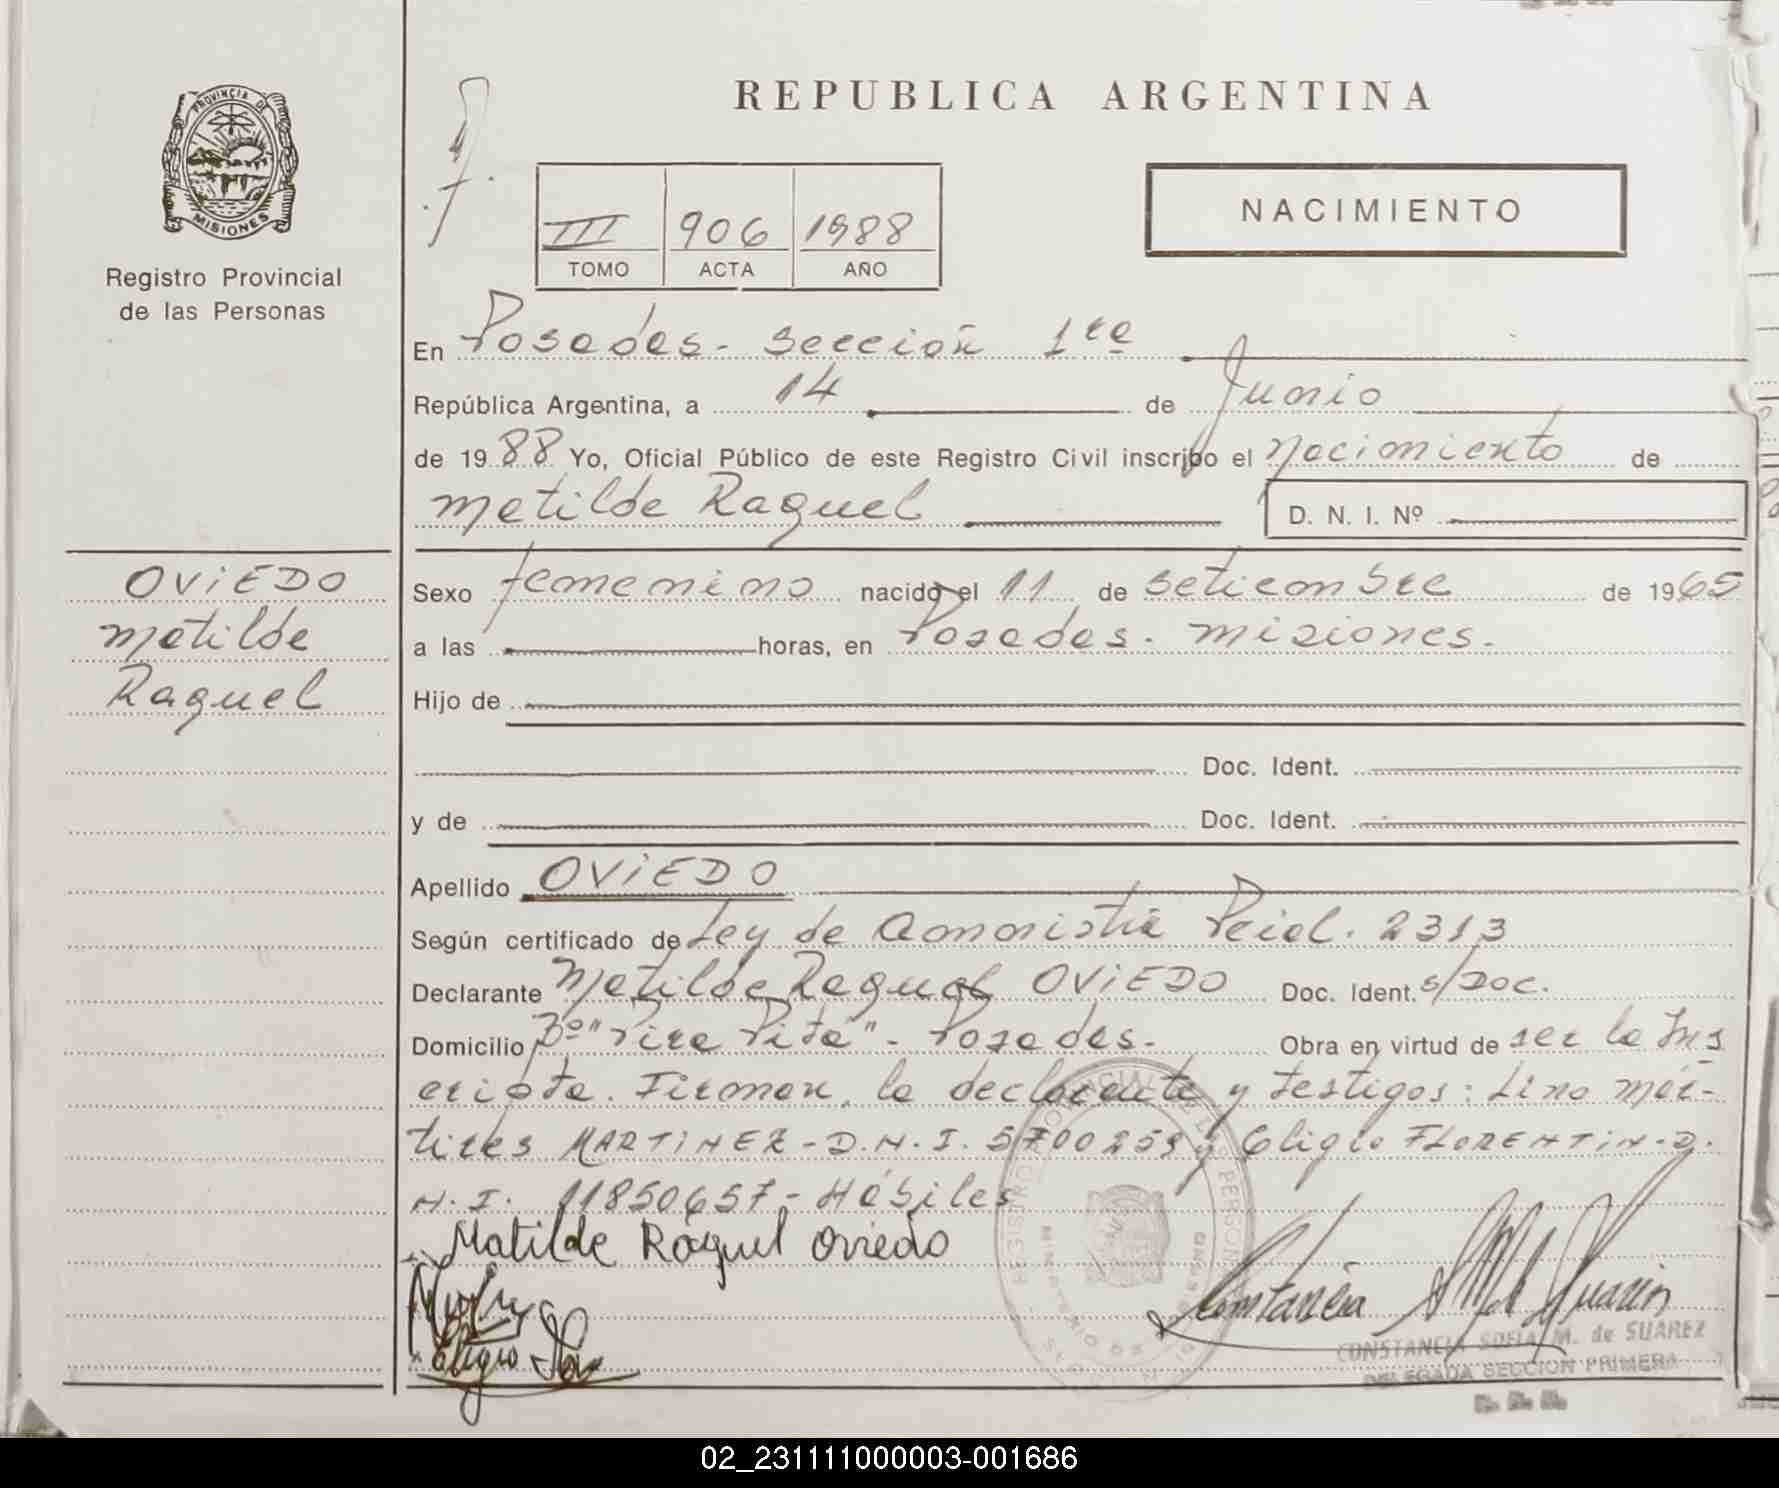 REPUBLICA ARGENTINA
PROVINCIA DE
MISIONES
Registro Provincial
de las Personas
III 906 1988
TOMO ACTA AÑO
NACIMIENTO
En Posadas - Sección 1ra
República Argentina, a 14 de Junio
de 1988 Yo, Oficial Público de este Registro Civil inscribo el Nacimiento de
Matilde Raquel D. N. I. Nº
OVIEDO
Matilde
Raquel
Sexo femenino nacido el 11 de Setiembre de 1965
a las horas, en Posadas - Misiones.
Hijo de
Doc. Ident.
y de Doc. Ident.
Apellido OVIEDO
Según certificado de Ley de Amnistía Pcial. 2313
Declarante Matilde Raquel OVIEDO Doc. Ident. s/Doc.
Domicilio Bº "Pira Pitá" - Posadas. Obra en virtud de ser la Ins
cripta. Firman, la declarante y testigos: Lino Már-
tires MARTINEZ - D.N.I. 5700259 y Eligio FLORENTIN - D.
N.I. 11850657 - Hábiles
Matilde Raquel Oviedo
Eligio
Constancia
CONSTANCIA SOFIA M. de SUAREZ
DELEGADA SECCION PRIMERA
02_231111000003-001686